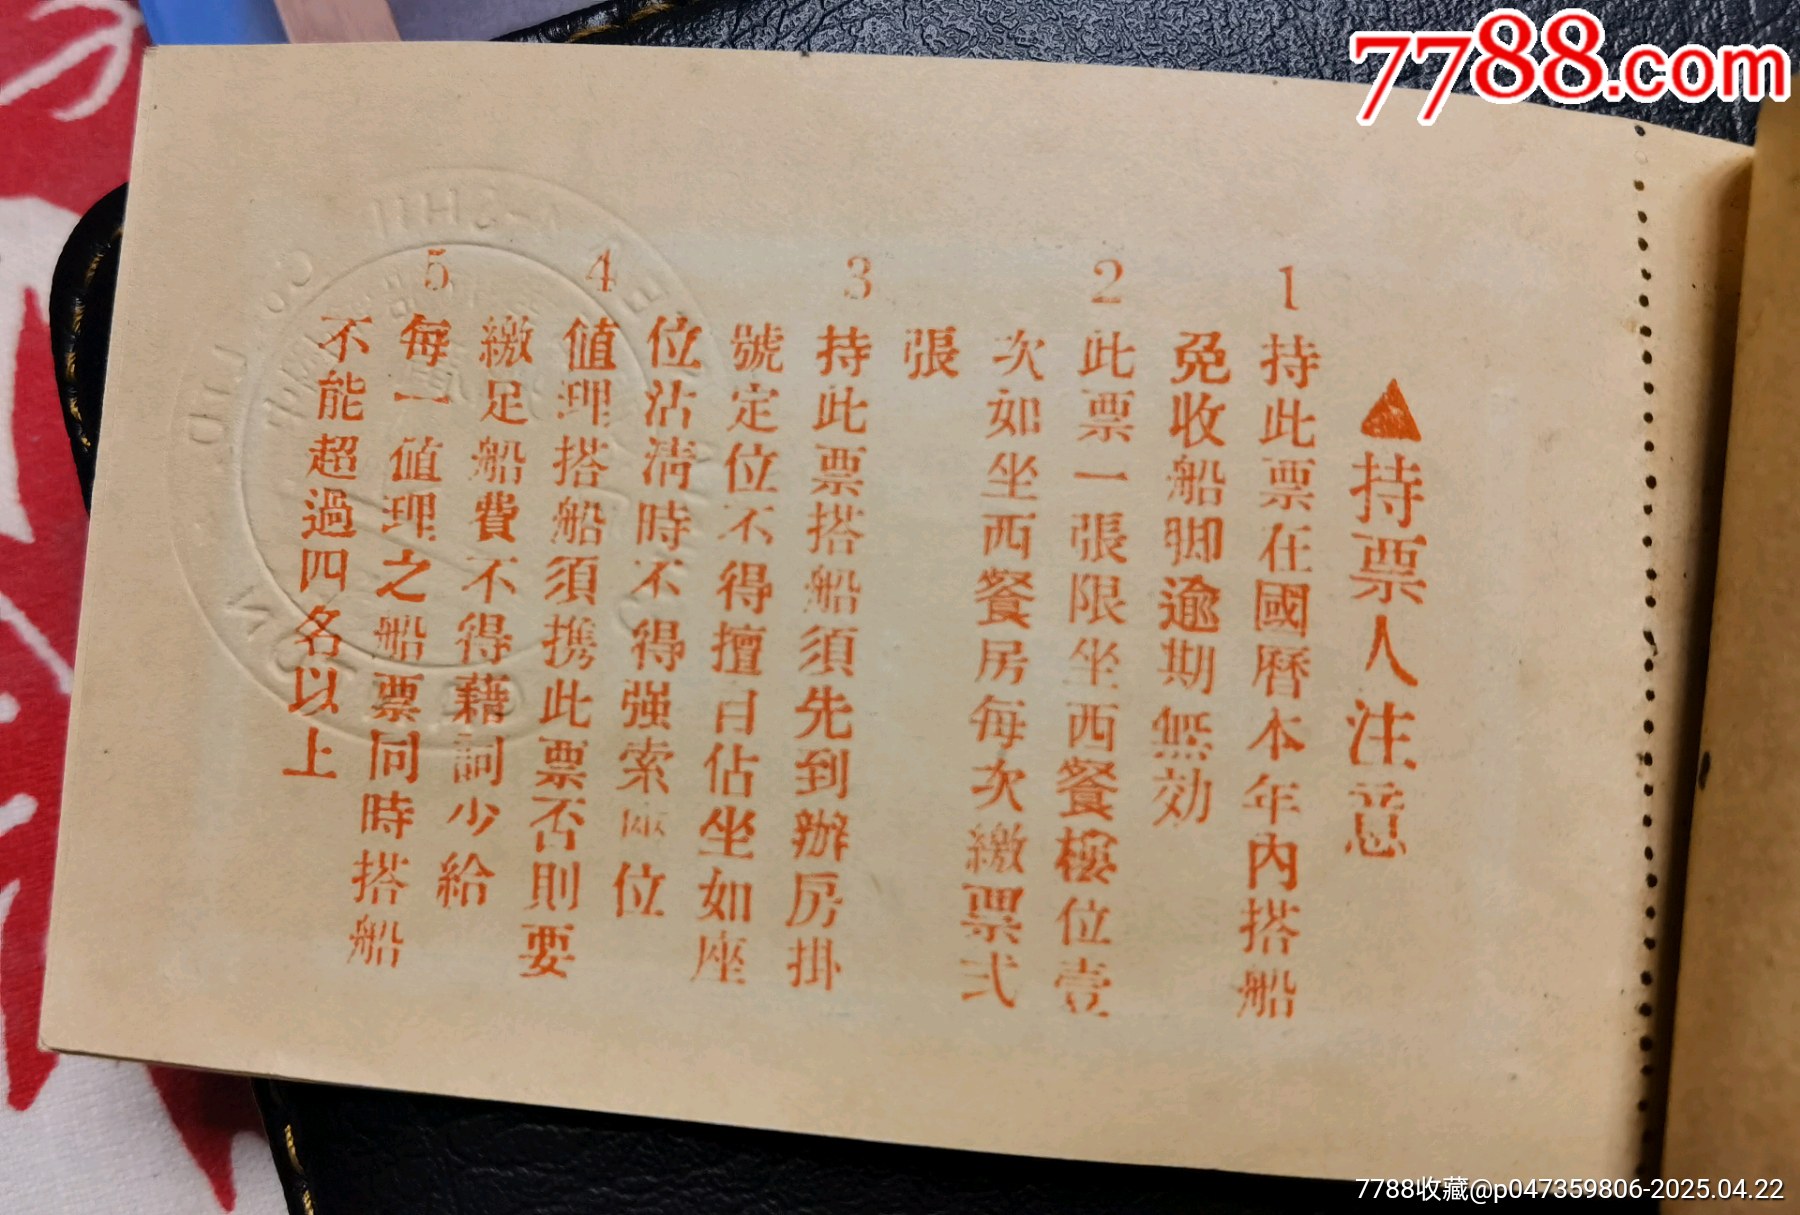 7788.com
▲持票人注意
1 持此票在國曆本年內搭船
免收船脚逾期無効
2 此票一張限坐西餐樓位壹
次如坐西餐房每次繳票弍
張
3 持此票搭船須先到辦房掛
號定位不得擅自佔坐如座
位沽淸時不得强索座位
4 値理搭船須携此票否則要
繳足船費不得藉詞少給
5 每一値理之船票同時搭船
不能超過四名以上
7788收藏@p047359806-2025.04.22